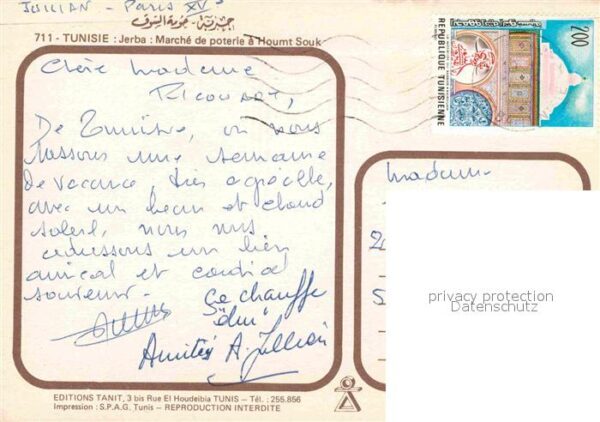 JULIAN - PARIS XV
جربة - حومة السوق
711 - TUNISIE : Jerba : Marché de poterie à Houmt Souk
200
REPUBLIQUE TUNISIENNE
Chère Madame
De Tunisie, où nous
passons une semaine
de vacance, très agréable,
avec un beau et chaud
soleil, nous vous
adressons un bien
amical et cordial
souvenir.
ça chauffe
"dur"
Amitiés A. Jullian
Madame
privacy protection
Datenschutz
EDITIONS TANIT, 3 bis Rue El Houdeibia TUNIS - Tél. : 255.856
Impression : S.P.A.G. Tunis - REPRODUCTION INTERDITE